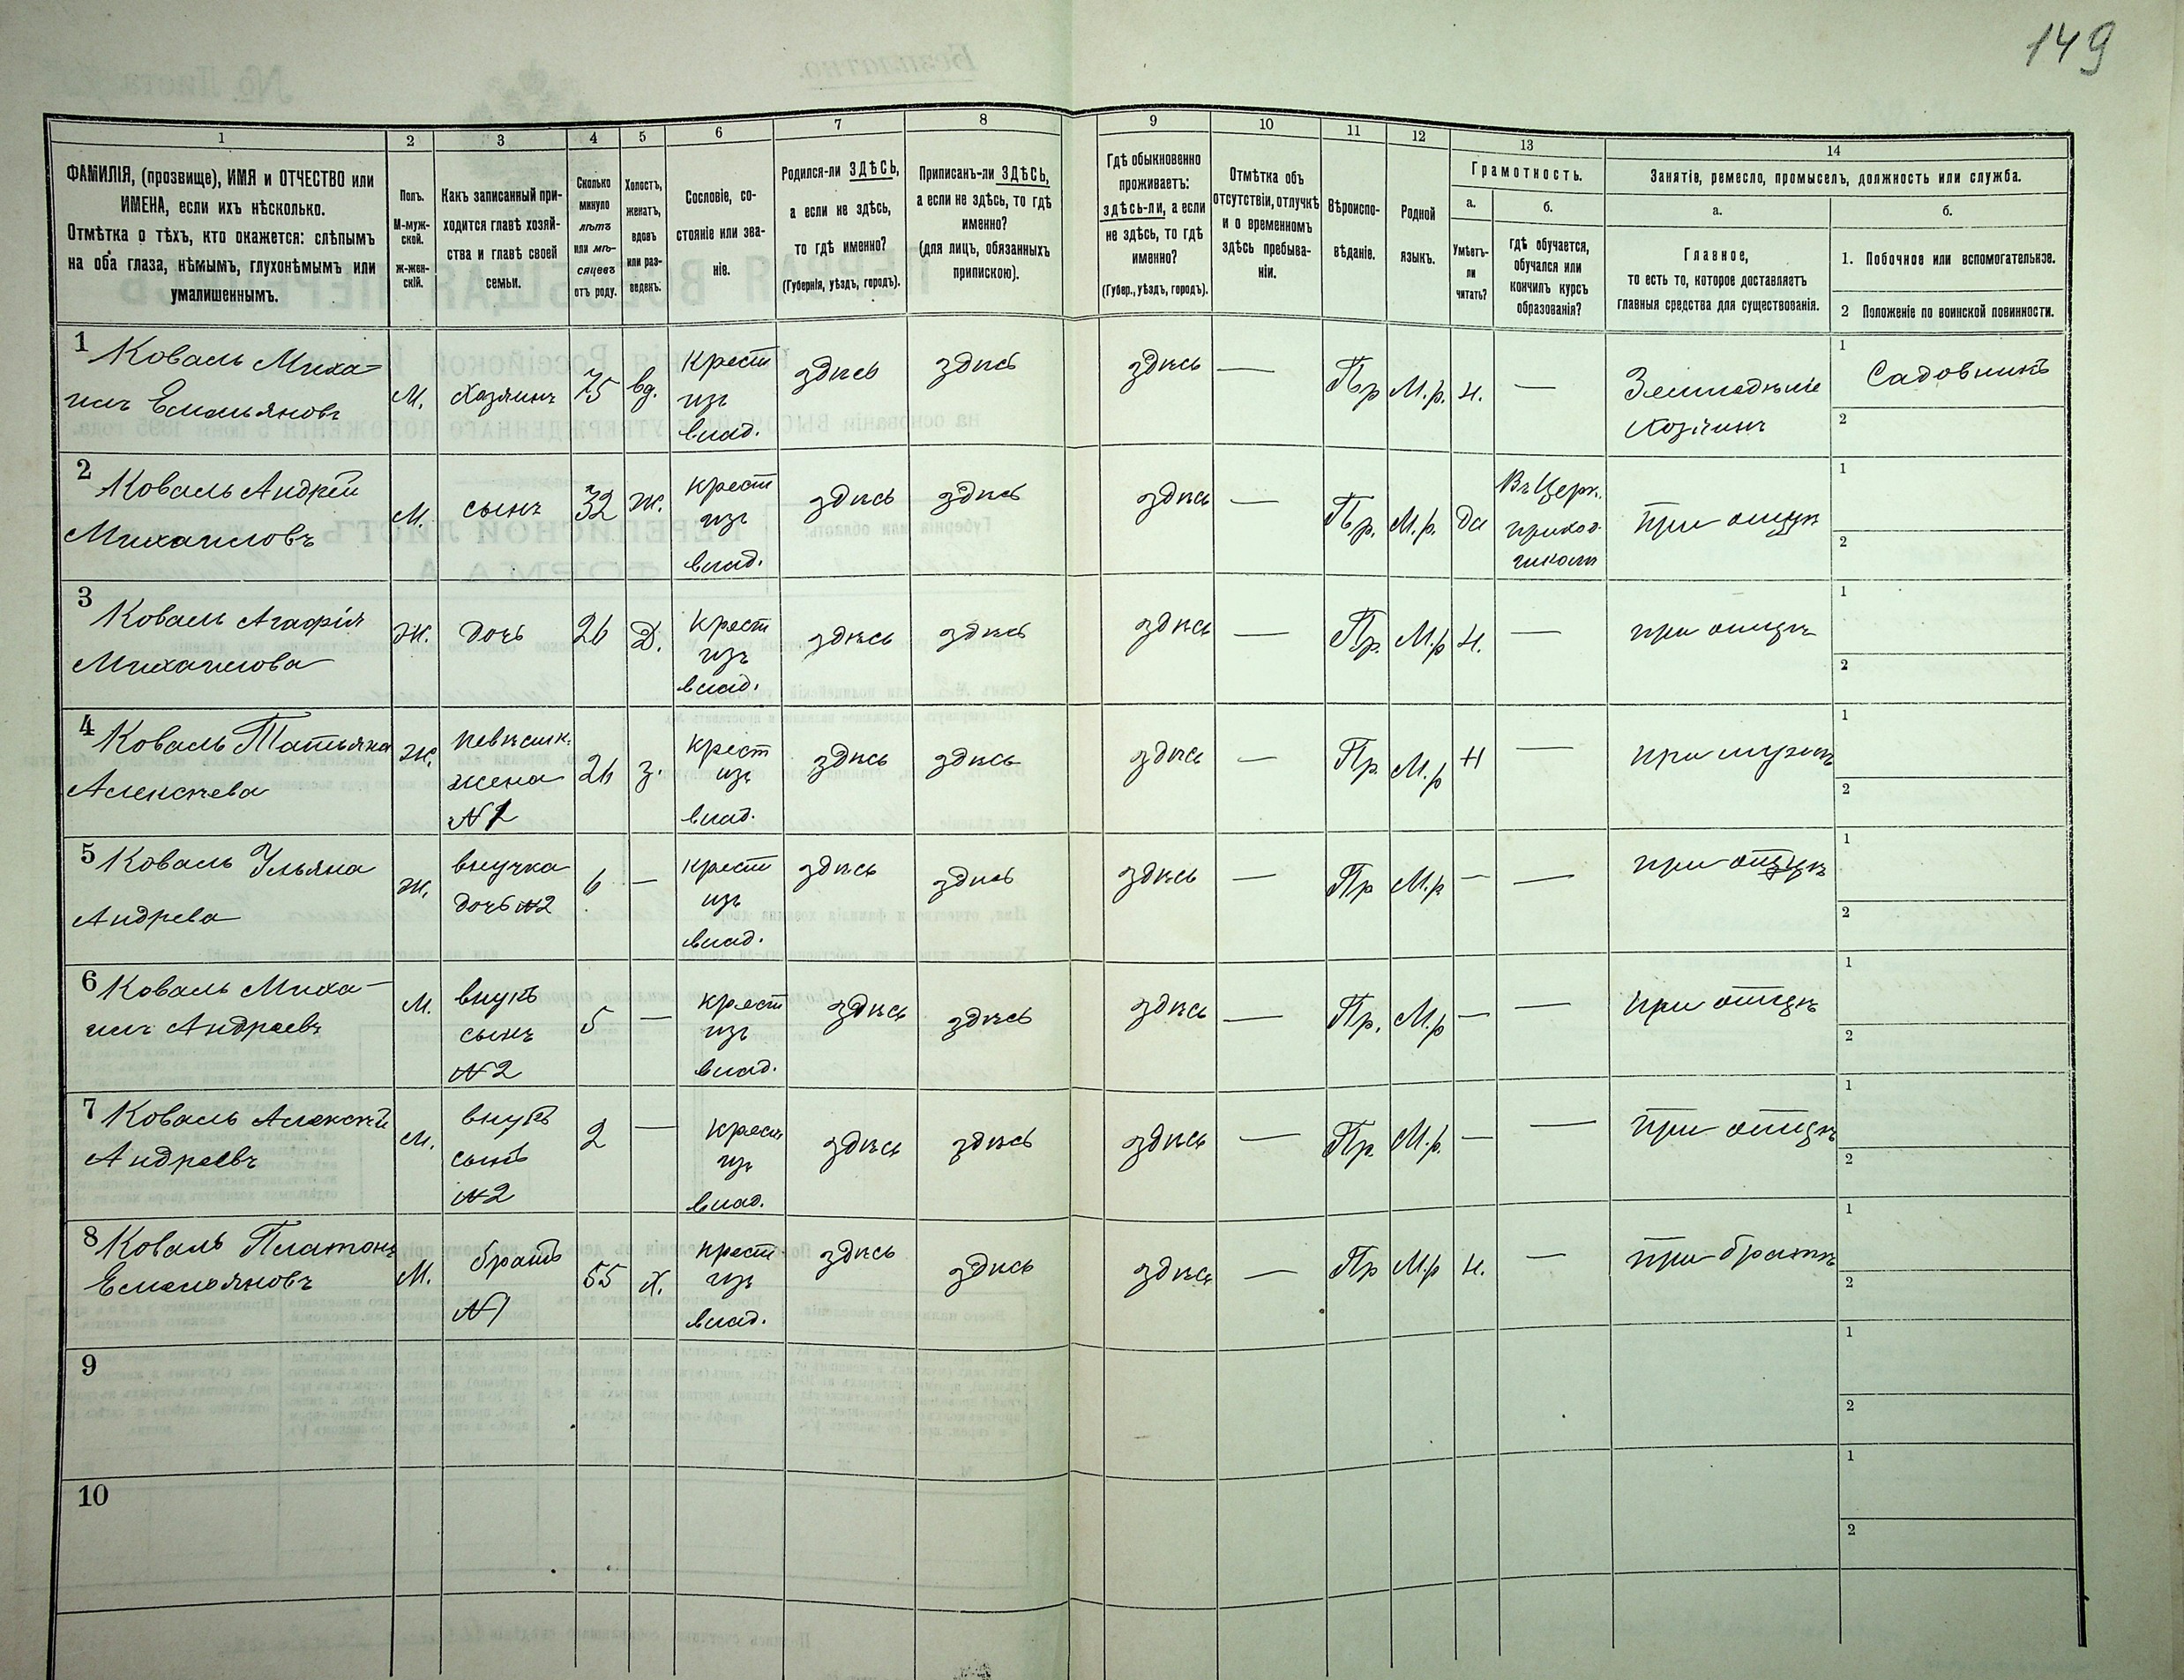 149
1
2
3
4
5
6
7
8
9
10
11
12
13
14
ФАМИЛІЯ, (прозвище), ИМЯ и ОТЧЕСТВО или
ИМЕНА, если ихъ нѣсколько.
Отмѣтка о тѣхъ, кто окажется: слѣпымъ
на оба глаза, нѣмымъ, глухонѣмымъ или
умалишеннымъ.
Полъ.
М-муж-
ской.
ж-жен-
скій.
Какъ записанный при-
ходится главѣ хозяй-
ства и главѣ своей
семьи.
Сколько
минуло
лѣтъ
или мѣ-
сяцевъ
отъ роду.
Холостъ,
женатъ,
вдовъ
или раз-
веденъ.
Сословіе, со-
стояніе или зва-
ніе.
Родился-ли ЗДѢСЬ,
а если не здѣсь,
то гдѣ именно?
(Губернія, уѣздъ, городъ).
Приписанъ-ли ЗДѢСЬ,
а если не здѣсь, то гдѣ
именно?
(для лицъ, обязанныхъ
припискою).
Гдѣ обыкновенно
проживаетъ:
здѣсь-ли, а если
не здѣсь, то гдѣ
именно?
(Губер., уѣздъ, городъ).
Отмѣтка объ
отсутствіи, отлучкѣ
и о временномъ
здѣсь пребыва-
ніи.
Вѣроиспо-
вѣданіе.
Родной
языкъ.
Грамотность.
а.
Умѣетъ-
ли
читать?
б.
гдѣ обучается,
обучался или
кончилъ курсъ
образованія?
Занятіе, ремесло, промыселъ, должность или служба.
а.
Главное,
то есть то, которое доставляетъ
главныя средства для существованія.
б.
1. Побочное или вспомогательное.
2 Положеніе по воинской повинности.
1
Коваль Миха-
илъ Емельяновъ
М.
Хозяинъ
75
вд.
Крест
изъ
влад.
здѣсь
здѣсь
здѣсь
—
Пр
М.р.
Н.
—
Земледѣліе
хозяинъ
1
Садовникъ
2
2
Коваль Андрей
Михаиловъ
М.
сынъ
32
ж.
крест
изъ
влад.
здѣсь
здѣсь
здѣсь
—
Пр.
М.р.
Да
Въ Церк.
приход.
школѣ
при отцѣ
1
2
3
Коваль Агафія
Михаилова
Ж.
дочь
26
Д.
крест
изъ
влад.
здѣсь
здѣсь
здѣсь
—
Пр.
М.р
Н.
—
при отцѣ
1
2
4
Коваль Татьяна
Алексѣева
Ж.
невѣстк.
жена
№2
26
з.
крест
изъ
влад.
здѣсь
здѣсь
здѣсь
—
Пр.
М.р
Н
—
при мужѣ
1
2
5
Коваль Ульяна
Андрева
Ж.
внучка
дочь №2
6
—
крест
изъ
влад.
здѣсь
здѣсь
здѣсь
—
Пр
М.р
—
—
при отцѣ
1
2
6
Коваль Миха-
илъ Андреевъ
М.
внукъ
сынъ
№2
5
—
крест
изъ
влад.
здѣсь
здѣсь
здѣсь
—
Пр.
М.р
—
—
при отцѣ
1
2
7
Коваль Алексѣй
Андреевъ
М.
внукъ
сынъ
№2
2
—
крест
изъ
влад.
здѣсь
здѣсь
здѣсь
—
Пр.
М.р.
—
—
при отцѣ
1
2
8
Коваль Платонъ
Емельяновъ
М.
братъ
№1
55
Х.
крест
изъ
влад.
здѣсь
здѣсь
здѣсь
—
Пр
М.р
Н.
—
при братѣ
1
2
9
1
2
10
1
2